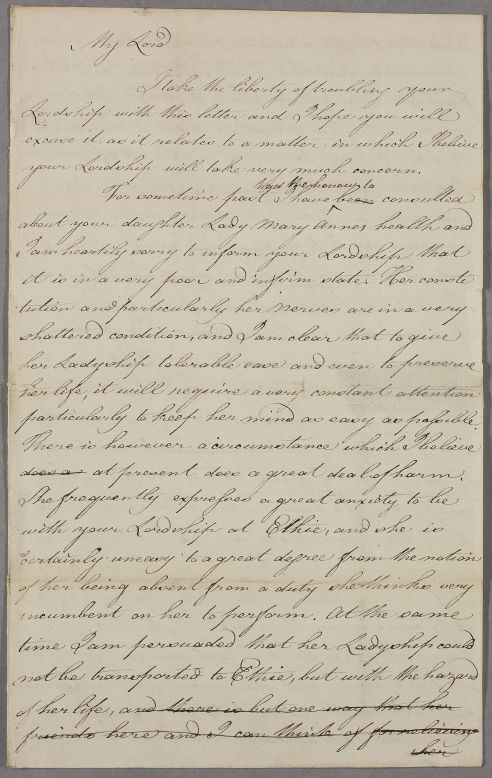 My Lord
I take the liberty of troubling your
Lordship with this letter and I hope you will
excuse it, as it relates to a matter in which I believe
your Lordship will take very much concern.
had the honour to
For sometime past I have been consulted
about your daughter Lady Mary Annes health and
I am heartily sorry to inform your Lordship that
it is in a very poor and infirm state. Her consti
tution and particularly her nerves are in a very
shattered condition, and I am clear that to give
her Ladyship tolerable ease and even to preserve
her life, it will require a very constant attention
particularly to keep her mind as easy as possible.
There is however a circumstance which I believe
does a at present does a great deal of harm.
She frequently expresses a great anxiety to be
with your Lordship at Ethie, and she is
certainly uneasy to a great degree from the notion
of her being absent from a duty she thinks very
incumbent on her to perform. At the same
time I am persuaded that her Ladyship could
not be transported to Ethie, but with the hazard
of her life, and there is but one way that her
friends here and I can think of for relieving
her